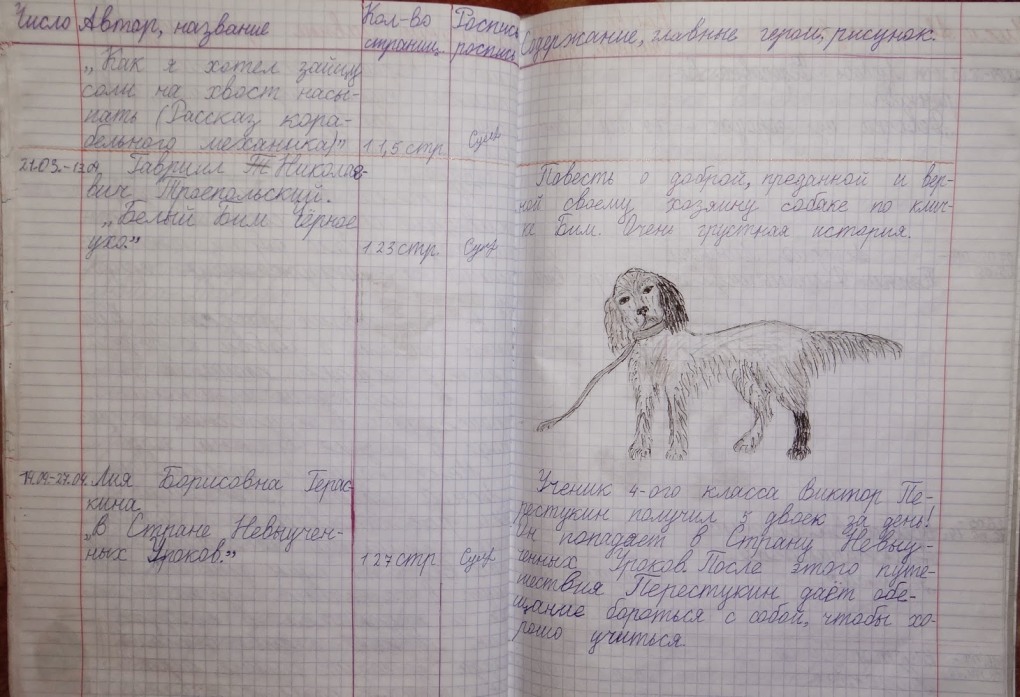 Число Автор, название
Кол-во
страниц.
Роспись
роспись
Содержание, главные герои, рисунок.
„Как я хотел зайцу
соли на хвост насы-
пать (Рассказ кора-
бельного механика)"
1,5 стр.
21.03.-13.04. Гавриил Т Николае-
вич Троепольский.
„Белый Бим Чёрное
ухо"
123 стр.
Повесть о доброй, преданной и вер-
ной своему хозяину собаке по клич-
ке Бим. Очень грустная история.
14.04.-27.04. Лия Борисовна Герас-
кина
„В Стране Невыучен-
ных Уроков."
127 стр
Ученик 4-ого класса Виктор Пе-
рестукин получил 5 двоек за день!
Он попадает в Страну Невыу-
ченных Уроков. После этого путе-
шествия Перестукин даёт обе-
щание бороться с собой, чтобы хо-
рошо учиться.